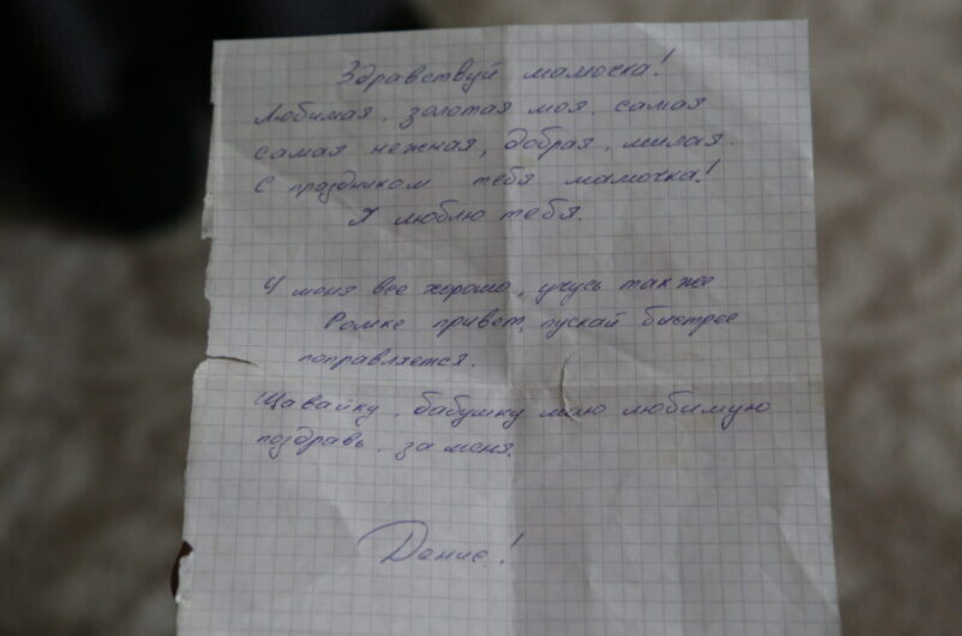 Здравствуй мамочка!
Любимая, золотая моя, самая
самая нежная, добрая, милая.
С праздником тебя мамочка!
Я люблю тебя.
У меня все хорошо, учусь так же
Ромке привет, пускай быстрее
поправляется.
бабушку маю любимую
поздравь, за меня.
Денис!